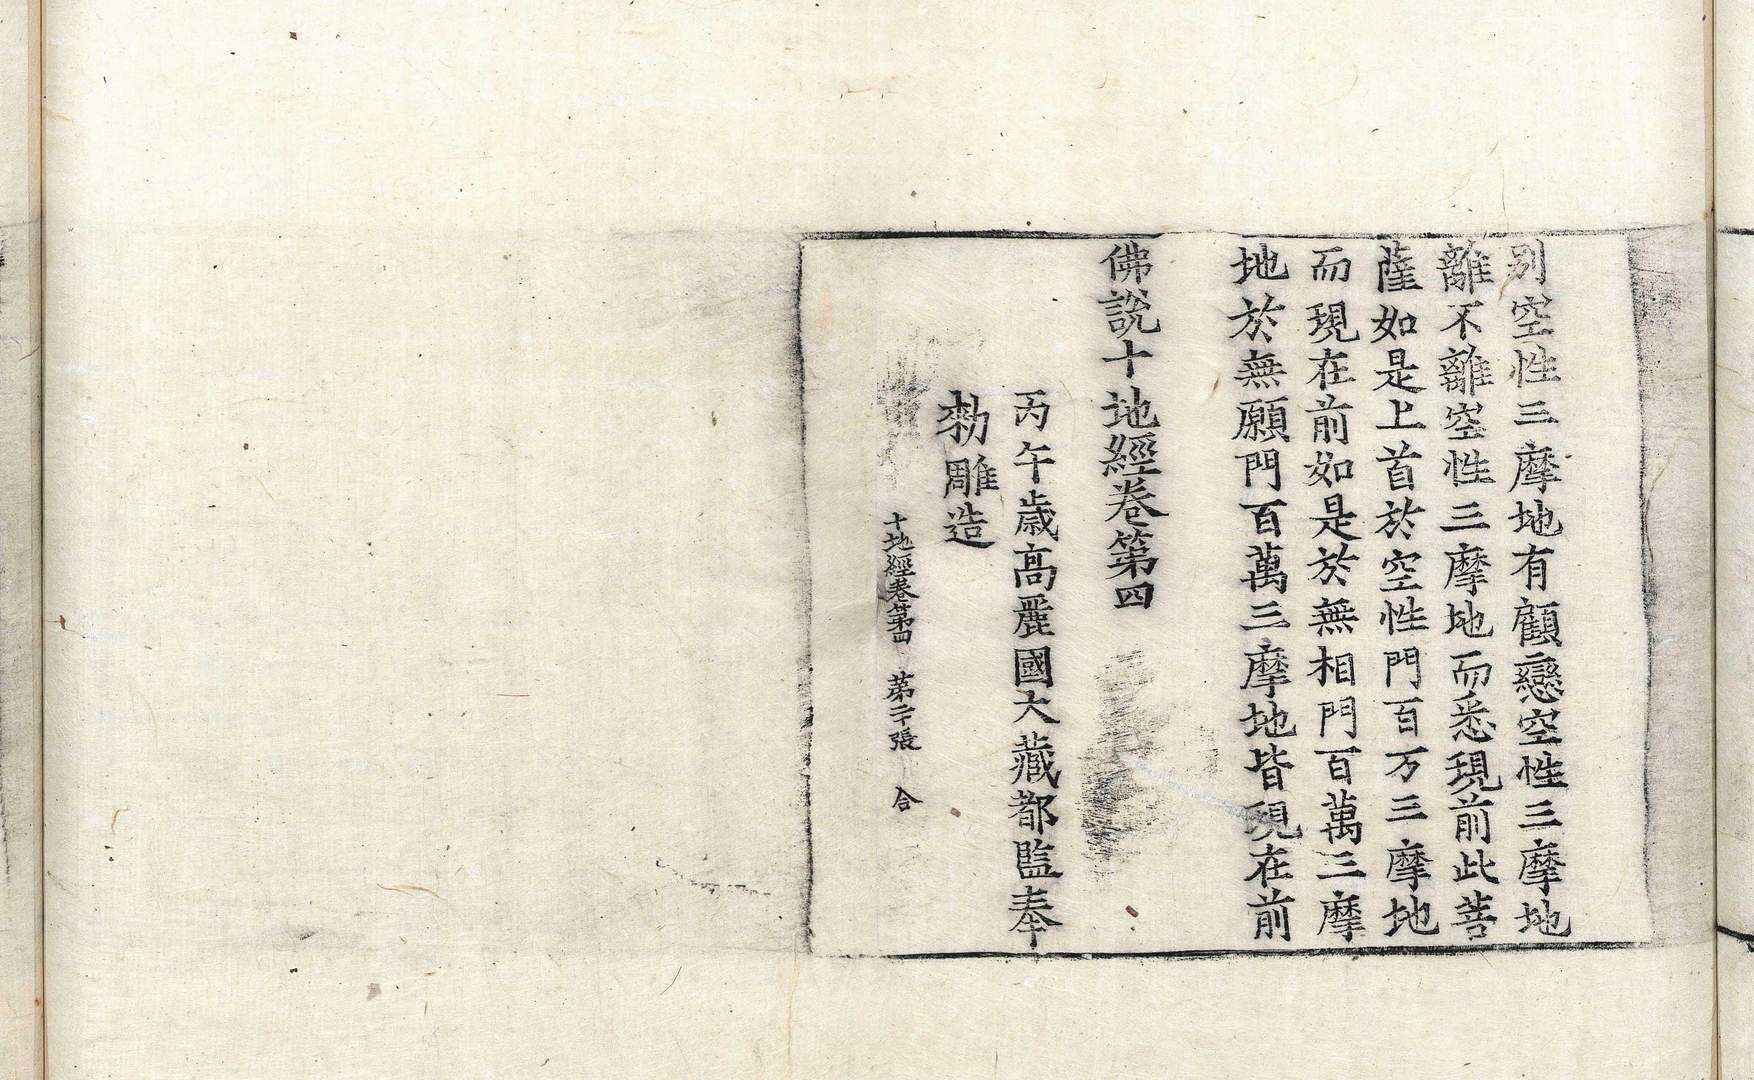 別空性三摩地有顧戀空性三摩地
離不離空性三摩地而悉現前此菩
薩如是上首於空性門百万三摩地
而現在前如是於無相門百萬三摩
地於無願門百萬三摩地皆現在前
佛說十地經卷第四
丙午歲高麗國大藏都監奉
勑雕造
十地經卷第四 第二十張 合